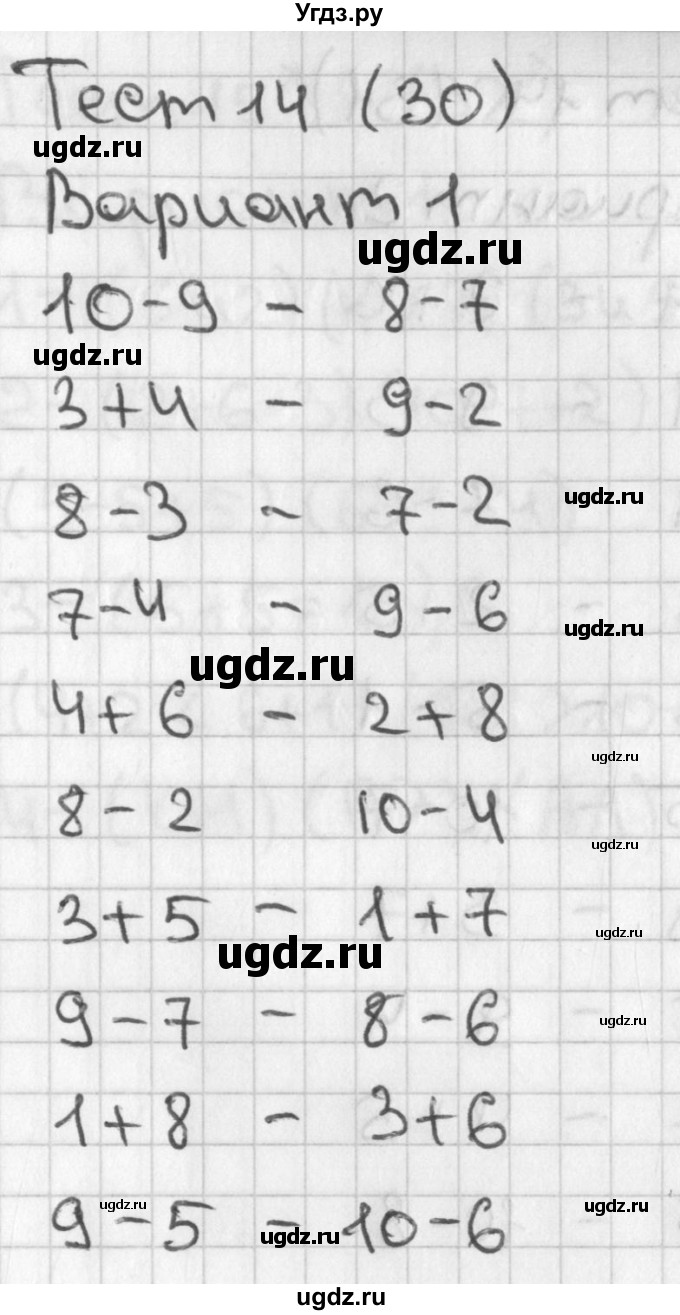 Угдз.ру
Тест 14 (30)
ugdz.ru
Вариант 1
ugdz.ru
10-9 - 8-7
ugdz.ru
3+4 - 9-2
8-3 - 7-2
ugdz.ru
7-4 - 9-6
ugdz.ru
ugdz.ru
4+6 - 2+8
ugdz.ru
8-2 10-4
ugdz.ru
3+5 - 1+7
ugdz.ru
ugdz.ru
9-7 - 8-6
ugdz.ru
1+8 - 3+6
ugdz.ru
ugdz.ru
9-5 - 10-6
ugdz.ru
ugdz.ru